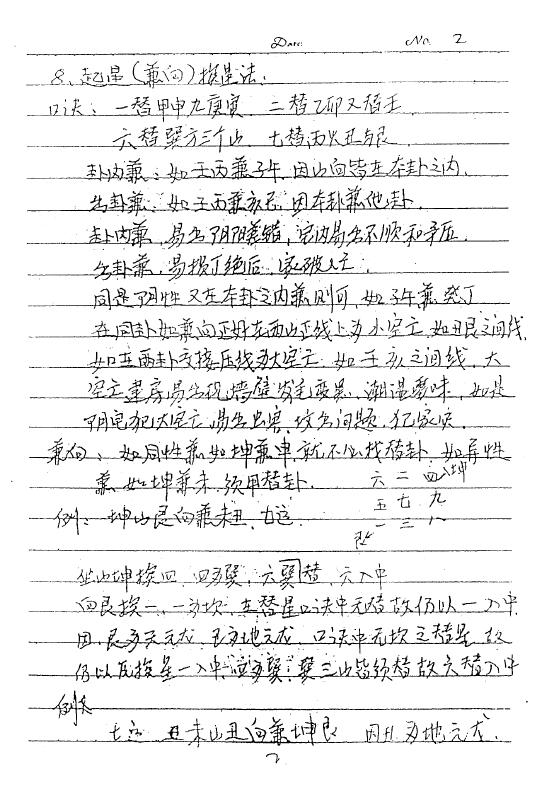 Date: No. 2
8、起星(兼向)挨星法:
口诀:一替甲申九庚寅 二替乙卯又替壬
六替巽方三个山 七替丙火丑与艮
卦内兼:如壬丙兼子午,因山向皆在本卦之内.
出卦兼:如壬丙兼亥巳,因本卦兼他卦.
卦内兼,易出阴阳差错,宅内易出不顺和矛盾.
出卦兼,易损丁绝后,家破人亡.
同是阴性又在本卦之内兼则可,如子午兼癸丁
在同卦如兼向正好在两山正线上为小空亡,如丑艮之间线,
如在两卦交接压线为大空亡,如壬亥之间线,大
空亡建房易出现墙壁发毛变黑、潮湿霉味,如是
阴宅犯大空亡易出虫害、坟出问题,犯家庭.
兼向:如同性兼如坤兼申,就不必找替卦,如异性
兼,如坤兼未,须用替卦. 六 二 四 坤
例:坤山艮向兼未丑,七运. 五 七 九
一 三 八
坐山坤挨四,四为巽,六巽替,六入中
向艮挨一,一为坎,在替星口诀中无替故仍以一入中
因艮为天元龙,艮为地元龙,口诀中无坎之替星,故
仍以原挨星一入中,四为巽:巽三山皆须替故六替入中
例
七运 丑未山丑向兼坤艮 因丑为地元龙.
2